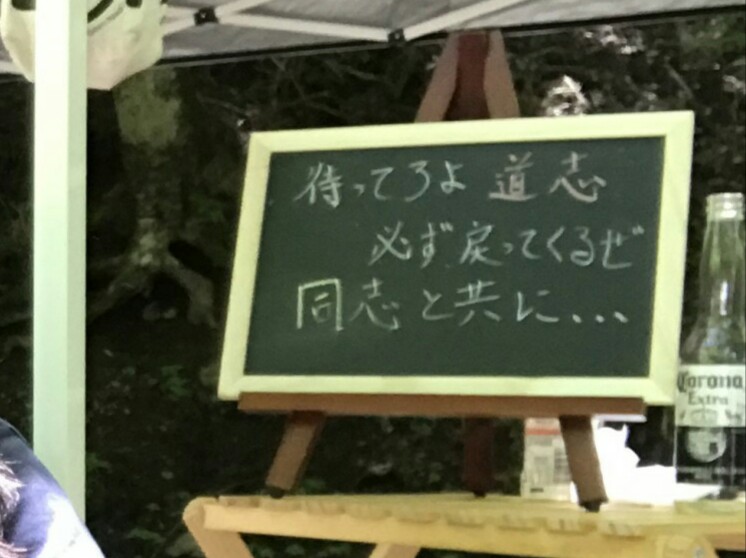 待ってろよ 道志
必ず戻ってくるぜ
同志と共に...
Corona
Extra